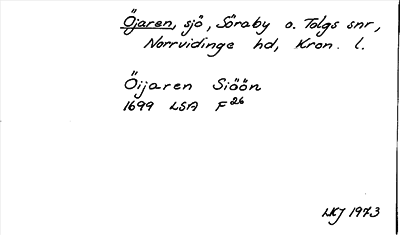 Öjaren, sjö, Söraby o. Tolgs snr,
Norrvidinge hd, Kron. l.
Öijaren Siöön
1699 LSA F26
LKJ 1973